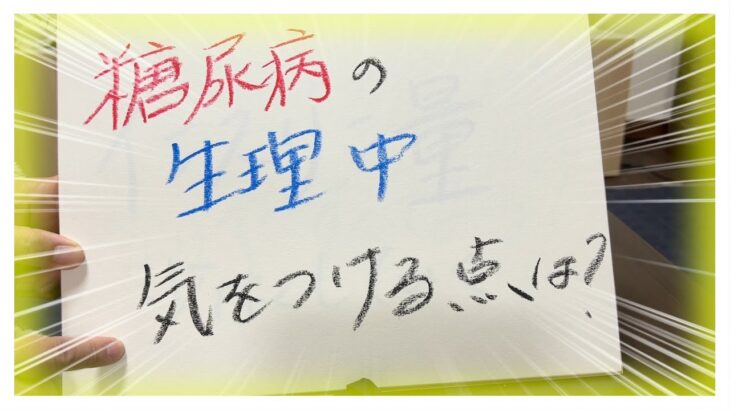 糖尿病の
生理中
気をつける点は?